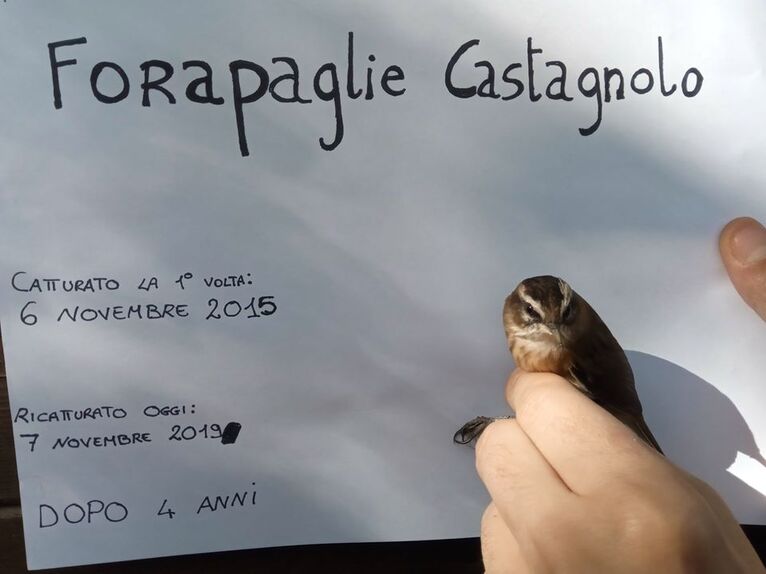 Forapaglie Castagnolo
CATTURATO LA 1° VOLTA:
6 NOVEMBRE 2015
RICATTURATO OGGI:
7 NOVEMBRE 2019
DOPO 4 ANNI